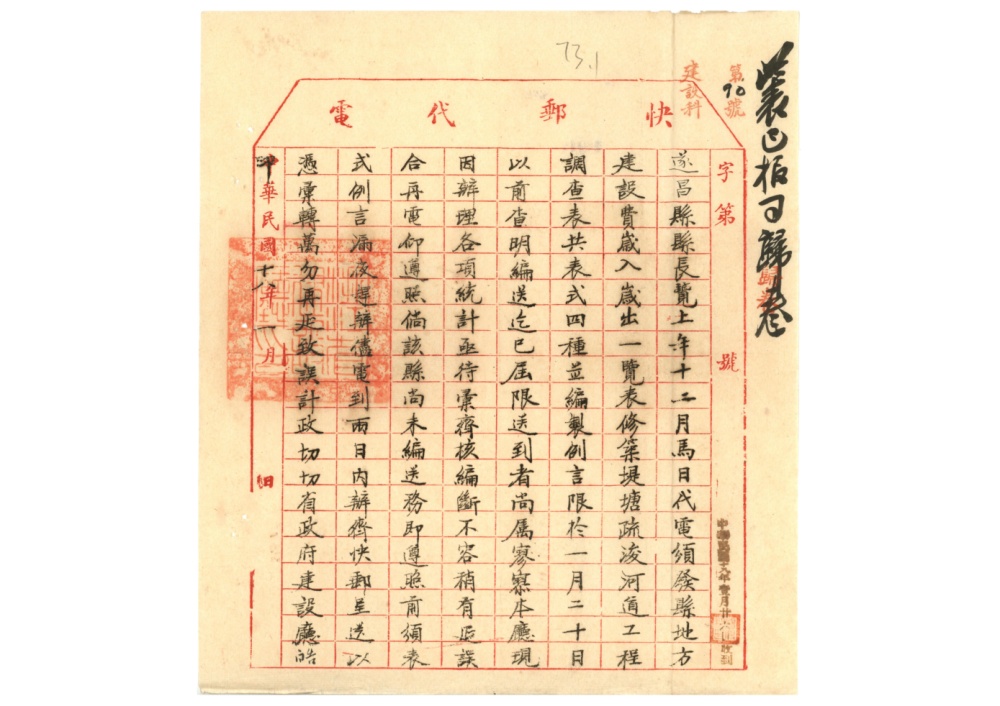 73.1
第90號
建設科
快郵代電
字第　號
遂昌縣縣長覽上年十二月馬日代電頒發縣地方
建設費歲入歲出一覽表修築堤塘疏浚河道工程
調查表共表式四種並編製例言限於一月二十日
以前查明編送迄已屆限送到者尚属寥寥本廳現
因辦理各項統計亟待彙齊核編斷不容稍有延誤
合再電仰遵照倘該縣尚未編送務即遵照前頒表
式例言漏夜趕辦儘電到兩日內辦齊快郵呈送以
憑彙轉萬勿再延致誤計政切切省政府建設廳皓
印
中華民國十八年一月　日
中華民國十八年壹月廿六日收到
歸卷